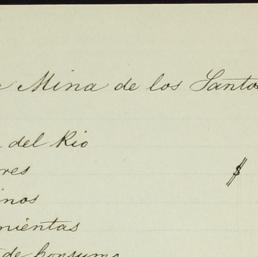 Mina de los Santos
del Rio
res $
inos
mientas
de consumo